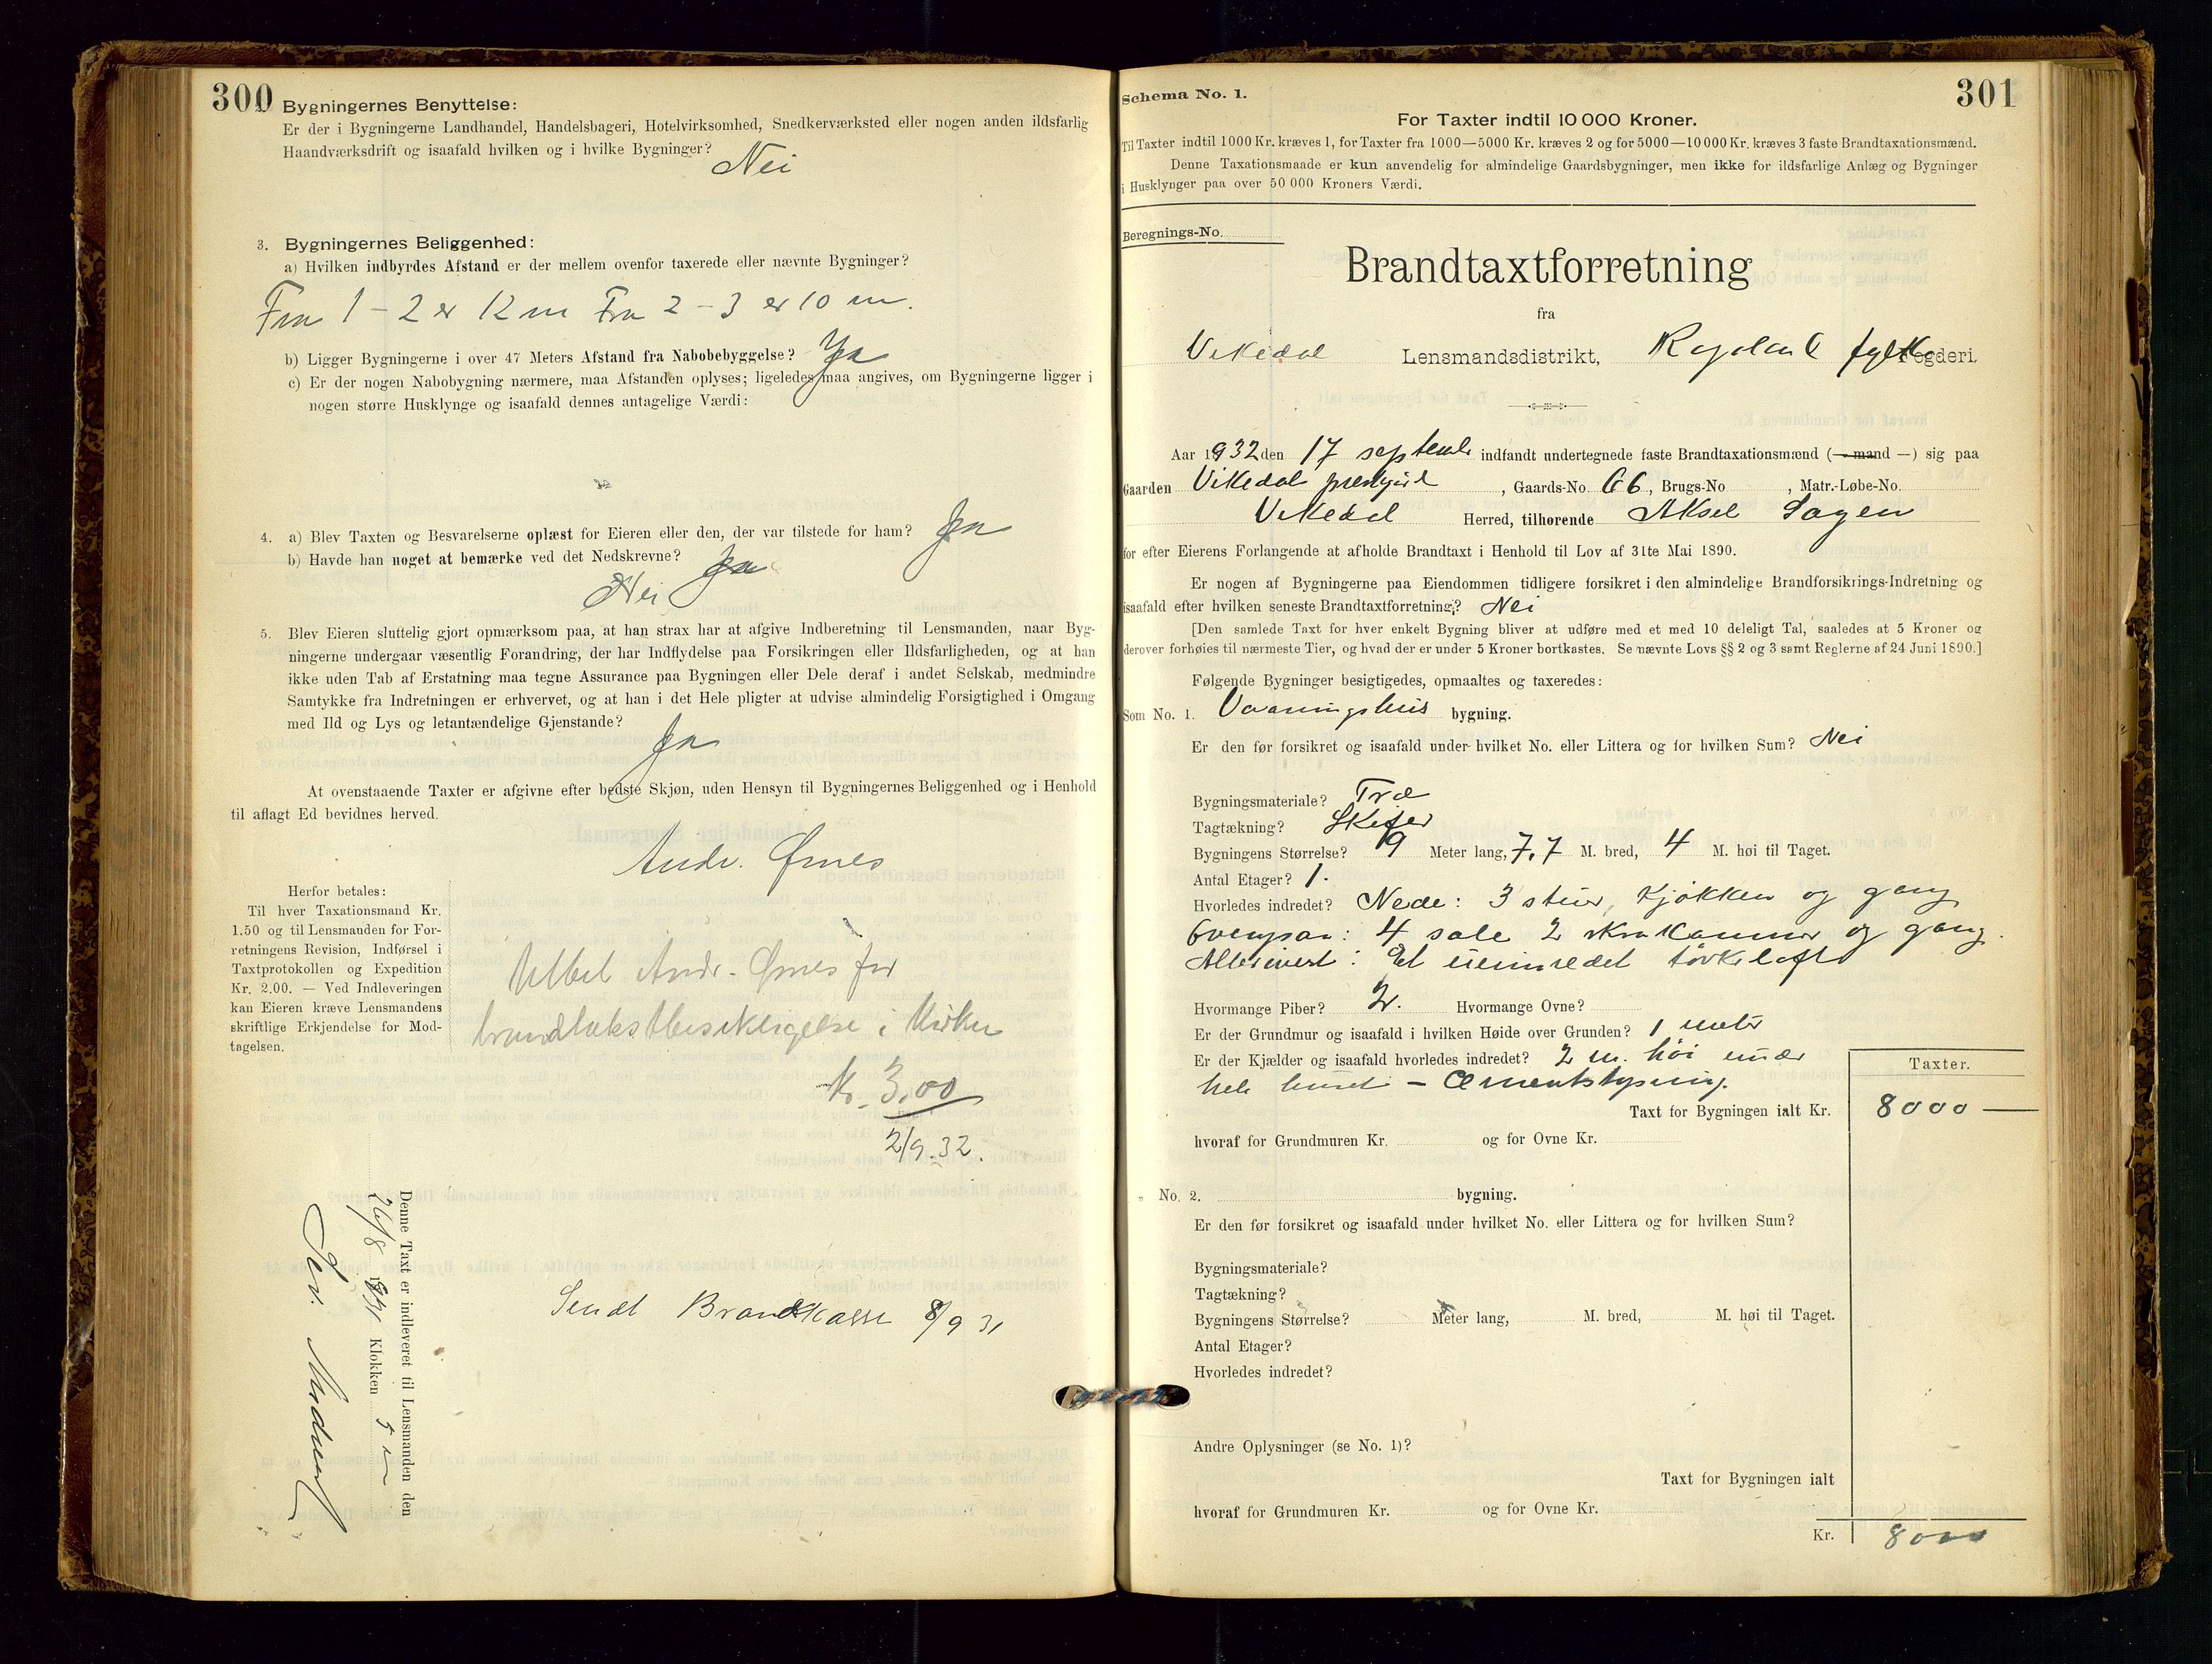 300
Bygningernes Benyttelse:
Er der i Bygningerne Landhandel, Handelsbageri, Hotelvirksomhed, Snedkerværksted eller nogen anden ildsfarlig
Haandværksdrift og isaafald hvilken og i hvilke Bygninger?
Nei
3. Bygningernes Beliggenhed:
a) Hvilken indbyrdes Afstand er der mellem ovenfor taxerede eller nævnte Bygninger?
Fra 1 - 2 er 12 m Fra 2 - 3 er 10 m.
b) Ligger Bygningerne i over 47 Meters Afstand fra Nabobebyggelse? Ja
c) Er der nogen Nabobygning nærmere, maa Afstanden oplyses; ligeledes maa angives, om Bygningerne ligger i
nogen større Husklynge og isaafald dennes antagelige Værdi:
4. a) Blev Taxten og Besvarelserne oplæst for Eieren eller den, der var tilstede for ham? Ja
b) Havde han noget at bemærke ved det Nedskrevne? Ja
Nei
5. Blev Eieren sluttelig gjort opmærksom paa, at han strax har at afgive Indberetning til Lensmanden, naar Byg-
ningerne undergaar væsentlig Forandring, der har Indflydelse paa Forsikringen eller Ildsfarligheden, og at han
ikke uden Tab af Erstatning maa tegne Assurance paa Bygningen eller Dele deraf i andet Selskab, medmindre
Samtykke fra Indretningen er erhvervet, og at han i det Hele pligter at udvise almindelig Forsigtighed i Omgang
med Ild og Lys og letantændelige Gjenstande?
Ja
At ovenstaaende Taxter er afgivne efter bedste Skjøn, uden Hensyn til Bygningernes Beliggenhed og i Henhold
til aflagt Ed bevidnes herved.
Andr. Ørnes
Herfor betales:
Til hver Taxationsmand Kr.
1.50 og til Lensmanden for For-
retningens Revision, Indførsel i
Taxtprotokollen og Expedition
Kr. 2.00. — Ved Indleveringen
kan Eieren kræve Lensmandens
skriftlige Erkjendelse for Mod-
tagelsen.
Utbet Andr. Ørnes for
brandtakstbesiktigelse i
Kr. 3.00
2/9.32.
Denne Taxt er indleveret til Lensmanden den
26/8 1931 Klokken
Sendt Brandkasse 8/9 31
Schema No. 1.
301
For Taxter indtil 10 000 Kroner.
Til Taxter indtil 1000 Kr. kræves 1, for Taxter fra 1000—5000 Kr. kræves 2 og for 5000—10 000 Kr. kræves 3 faste Brandtaxationsmænd.
Denne Taxationsmaade er kun anvendelig for almindelige Gaardsbygninger, men ikke for ildsfarlige Anlæg og Bygninger
i Husklynger paa over 50 000 Kroners Værdi.
Beregnings-No.
Brandtaxtforretning
fra
Vikedal Lensmandsdistrikt, Rogaland fylke Fogderi.
Aar 1932 den 17 septembr indfandt undertegnede faste Brandtaxationsmænd (— mand —) sig paa
Gaarden Vikedal prestgård, Gaards-No. 66, Brugs-No , Matr.-Løbe-No.
Vikedal Herred, tilhørende Aksel Sagen
for efter Eierens Forlangende at afholde Brandtaxt i Henhold til Lov af 31te Mai 1890.
Er nogen af Bygningerne paa Eiendommen tidligere forsikret i den almindelige Brandforsikrings-Indretning og
isaafald efter hvilken seneste Brandtaxtforretning? Nei
[Den samlede Taxt for hver enkelt Bygning bliver at udføre med et med 10 deleligt Tal, saaledes at 5 Kroner og
derover forhøies til nærmeste Tier, og hvad der er under 5 Kroner bortkastes. Se nævnte Lovs §§ 2 og 3 samt Reglerne af 24 Juni 1890.]
Følgende Bygninger besigtigedes, opmaaltes og taxeredes:
Som No. 1. Vaaningshus bygning.
Er den før forsikret og isaafald under hvilket No. eller Littera og for hvilken Sum? Nei
Bygningsmateriale? Træ
Tagtækning? Skifer
Bygningens Størrelse? 9 Meter lang, 7,7 M. bred, 4 M. høi til Taget.
Antal Etager? 1.
Hvorledes indredet? Nede: 3 stuer, kjøkken og gang
Ovenpaa: 4 sale 2 skrakammer og gang.
Allerøverst: Et uinnredet tørkeloft
Hvormange Piber? 2. Hvormange Ovne?
Er der Grundmur og isaafald i hvilken Høide over Grunden? 1 meter
Er der Kjælder og isaafald hvorledes indredet? 2 m. høi under
hele huset - Cementstøpning.
Taxter.
Taxt for Bygningen ialt Kr. 8000 —
hvoraf for Grundmuren Kr. og for Ovne Kr.
" No. 2. bygning.
Er den før forsikret og isaafald under hvilket No. eller Littera og for hvilken Sum?
Bygningsmateriale?
Tagtækning?
Bygningens Størrelse? Meter lang, M. bred, M. høi til Taget.
Antal Etager?
Hvorledes indredet?
Andre Oplysninger (se No. 1)?
Taxt for Bygningen ialt
hvoraf for Grundmuren Kr. og for Ovne Kr.
Kr. 8000